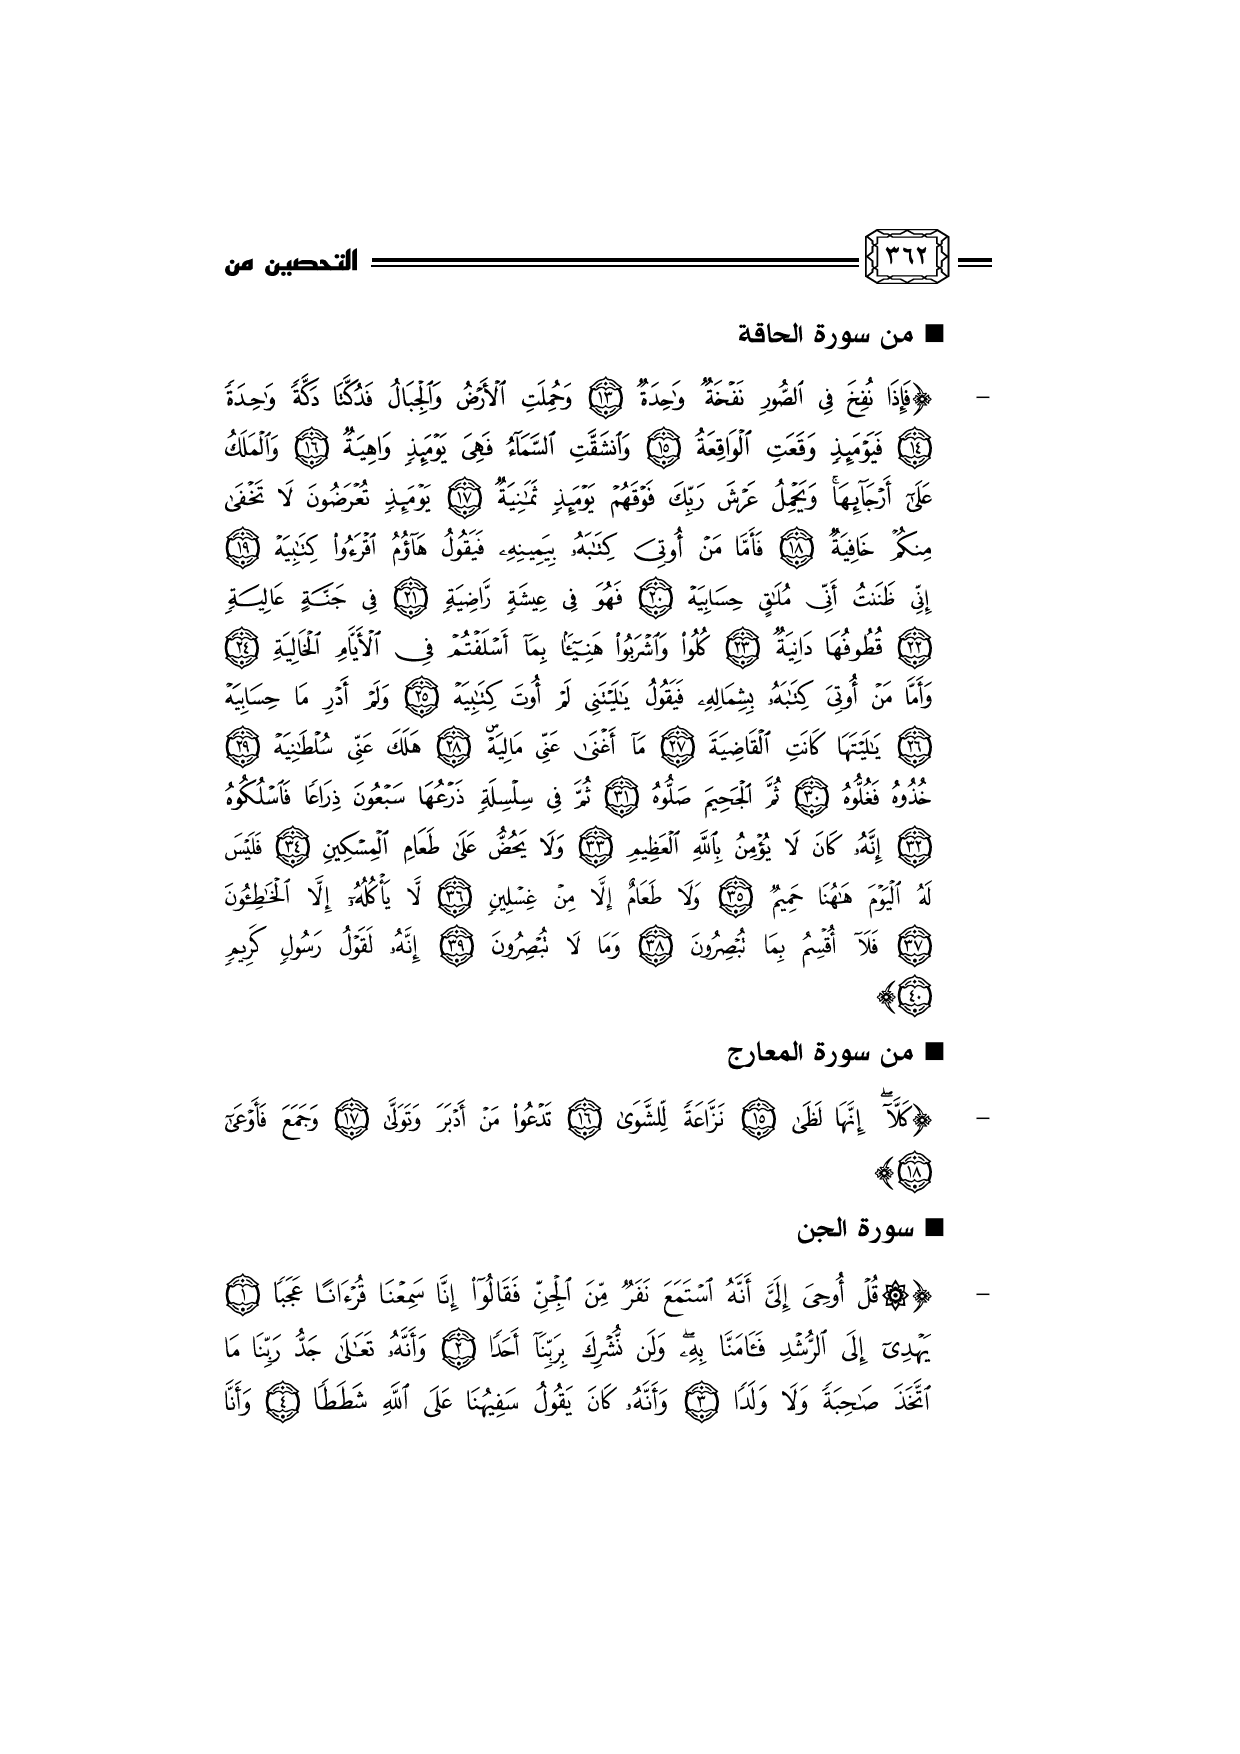 ٣٦٢ التحصين من
■ من سورة الحاقة
– ﴿فَإِذَا نُفِخَ فِي ٱلصُّورِ نَفْخَةٌ وَٰحِدَةٌ ١٣ وَحُمِلَتِ ٱلْأَرْضُ وَٱلْجِبَالُ فَدُكَّتَا دَكَّةً وَٰحِدَةً
١٤ فَيَوْمَئِذٍ وَقَعَتِ ٱلْوَاقِعَةُ ١٥ وَٱنشَقَّتِ ٱلسَّمَآءُ فَهِىَ يَوْمَئِذٍ وَاهِيَةٌ ١٦ وَٱلْمَلَكُ
عَلَىٰٓ أَرْجَآئِهَا ۚ وَيَحْمِلُ عَرْشَ رَبِّكَ فَوْقَهُمْ يَوْمَئِذٍ ثَمَٰنِيَةٌ ١٧ يَوْمَئِذٍ تُعْرَضُونَ لَا تَخْفَىٰ
مِنكُمْ خَافِيَةٌ ١٨ فَأَمَّا مَنْ أُوتِىَ كِتَٰبَهُۥ بِيَمِينِهِۦ فَيَقُولُ هَآؤُمُ ٱقْرَءُوا۟ كِتَٰبِيَهْ ١٩
إِنِّى ظَنَنتُ أَنِّى مُلَٰقٍ حِسَابِيَهْ ٢٠ فَهُوَ فِى عِيشَةٍ رَّاضِيَةٍ ٢١ فِى جَنَّةٍ عَالِيَةٍ
٢٢ قُطُوفُهَا دَانِيَةٌ ٢٣ كُلُوا۟ وَٱشْرَبُوا۟ هَنِيٓـًٔۢا بِمَآ أَسْلَفْتُمْ فِى ٱلْأَيَّامِ ٱلْخَالِيَةِ ٢٤
وَأَمَّا مَنْ أُوتِىَ كِتَٰبَهُۥ بِشِمَالِهِۦ فَيَقُولُ يَٰلَيْتَنِى لَمْ أُوتَ كِتَٰبِيَهْ ٢٥ وَلَمْ أَدْرِ مَا حِسَابِيَهْ
٢٦ يَٰلَيْتَهَا كَانَتِ ٱلْقَاضِيَةَ ٢٧ مَآ أَغْنَىٰ عَنِّى مَالِيَهْ ۜ ٢٨ هَلَكَ عَنِّى سُلْطَٰنِيَهْ ٢٩
خُذُوهُ فَغُلُّوهُ ٣٠ ثُمَّ ٱلْجَحِيمَ صَلُّوهُ ٣١ ثُمَّ فِى سِلْسِلَةٍ ذَرْعُهَا سَبْعُونَ ذِرَاعًا فَٱسْلُكُوهُ
٣٢ إِنَّهُۥ كَانَ لَا يُؤْمِنُ بِٱللَّهِ ٱلْعَظِيمِ ٣٣ وَلَا يَحُضُّ عَلَىٰ طَعَامِ ٱلْمِسْكِينِ ٣٤ فَلَيْسَ
لَهُ ٱلْيَوْمَ هَٰهُنَا حَمِيمٌ ٣٥ وَلَا طَعَامٌ إِلَّا مِنْ غِسْلِينٍ ٣٦ لَّا يَأْكُلُهُۥٓ إِلَّا ٱلْخَٰطِـُٔونَ
٣٧ فَلَآ أُقْسِمُ بِمَا تُبْصِرُونَ ٣٨ وَمَا لَا تُبْصِرُونَ ٣٩ إِنَّهُۥ لَقَوْلُ رَسُولٍ كَرِيمٍ
٤٠﴾
■ من سورة المعارج
– ﴿كَلَّآ ۖ إِنَّهَا لَظَىٰ ١٥ نَزَّاعَةً لِّلشَّوَىٰ ١٦ تَدْعُوا۟ مَنْ أَدْبَرَ وَتَوَلَّىٰ ١٧ وَجَمَعَ فَأَوْعَىٰٓ
١٨﴾
■ سورة الجن
– ﴿۞قُلْ أُوحِىَ إِلَىَّ أَنَّهُ ٱسْتَمَعَ نَفَرٌ مِّنَ ٱلْجِنِّ فَقَالُوٓا۟ إِنَّا سَمِعْنَا قُرْءَانًا عَجَبًا ١
يَهْدِىٓ إِلَى ٱلرُّشْدِ فَـَٔامَنَّا بِهِۦ ۖ وَلَن نُّشْرِكَ بِرَبِّنَآ أَحَدًا ٢ وَأَنَّهُۥ تَعَٰلَىٰ جَدُّ رَبِّنَا مَا
ٱتَّخَذَ صَٰحِبَةً وَلَا وَلَدًا ٣ وَأَنَّهُۥ كَانَ يَقُولُ سَفِيهُنَا عَلَى ٱللَّهِ شَطَطًا ٤ وَأَنَّا